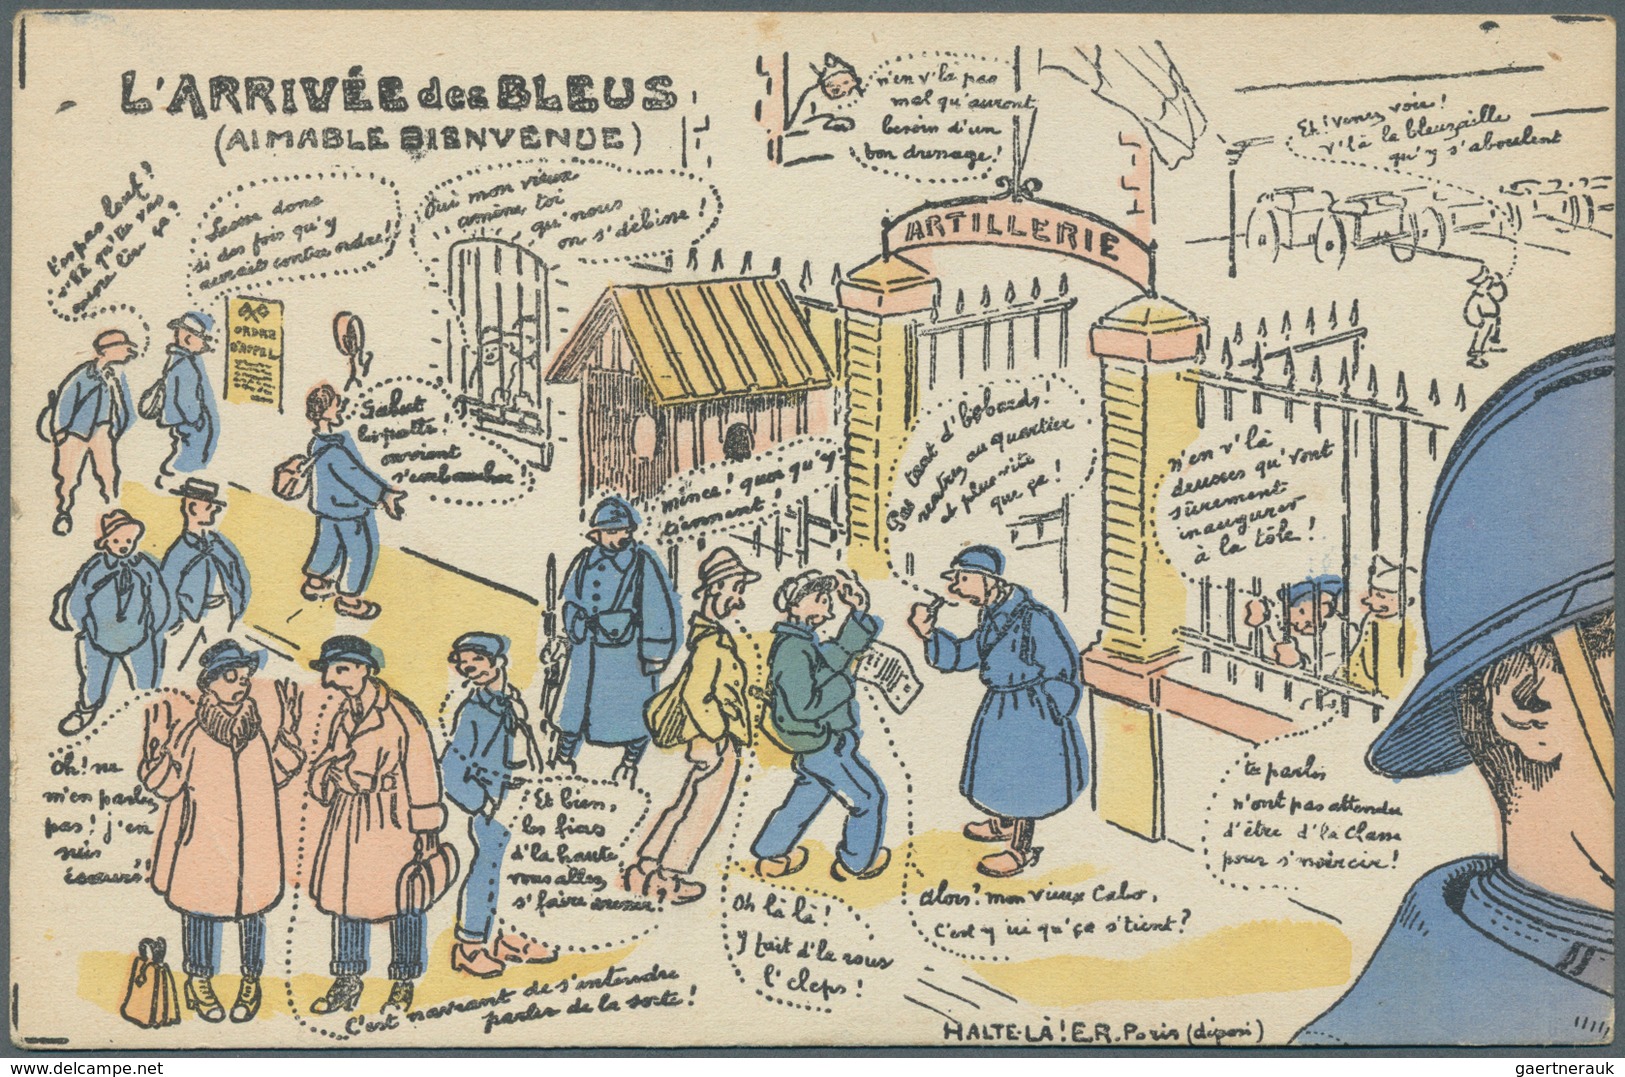 L'ARRIVÉE des BLEUS
(AIMABLE BIENVENUE)
n'en v'là pas
mal qu'auront
besoin d'un
bon dressage!
Eh! venez voir!
v'là la bleusaille
qu'y s'aboulent
T'en pas
v'là qu'tu vas
ça!
donc
si des fois qu'y
aurait contre ordre!
Oui mon vieux
amène, toi
qu'nous
on s'débine!
ARTILLERIE
ORDRE
D'APPEL
Salut
on vient
s'embaucher!
mince! quoi qu'y
tiennent!
Pas tant d'bobards!
rentrez au quartier
et plus vite
que ça!
n'en v'là
deusses qu'vont
sûrement
inaugurer
à la tôle!
Oh! ne
m'en parlez
pas! j'en
suis
écœuré!
Et bien,
les fieas
d'la haute
vous allez
s'faire dresser?
C'est navrant de s'entendre
parler de la sorte!
Oh là là!
Y fait d'la sous
l'cleps!
Alors? mon vieux Cabo,
C'est y ici qu'ça s'tient?
tu parles
n'ont pas attendu
d'être d'la Classe
pour s'noircir!
HALTE-LÀ! E.R. Paris (déposé)
gaertnerauk